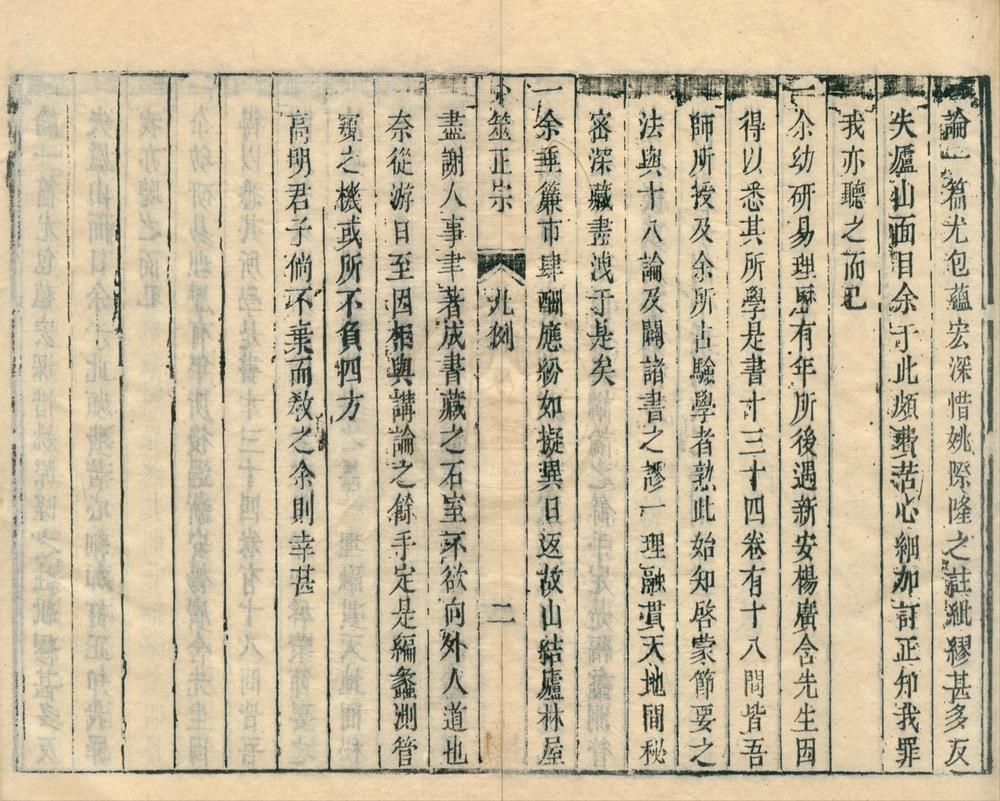 論一篇尤包蘊宏深惜姚際隆之註紕繆甚多反
失廬山面目余于此頗費苦心細加訂正知我罪
我亦聽之而已
一余幼研易理歷有年所後遇新安楊廣含先生因
得以悉其所學是書十三十四卷有十八問皆吾
師所授及余所占驗學者熟此始知啓蒙節要之
法與十八論及闢諸書之謬一理融貫天地間秘
密深藏盡洩于是矣
一余垂簾市肆酬應紛如擬異日返故山結廬林屋
卜筮正宗 凡例 二
盡謝人事聿著成書藏之石室不欲向外人道也
奈從游日至因相與講論之餘手定是編蠡測管
窺之機或所不負四方
高明君子倘不棄而教之余則幸甚